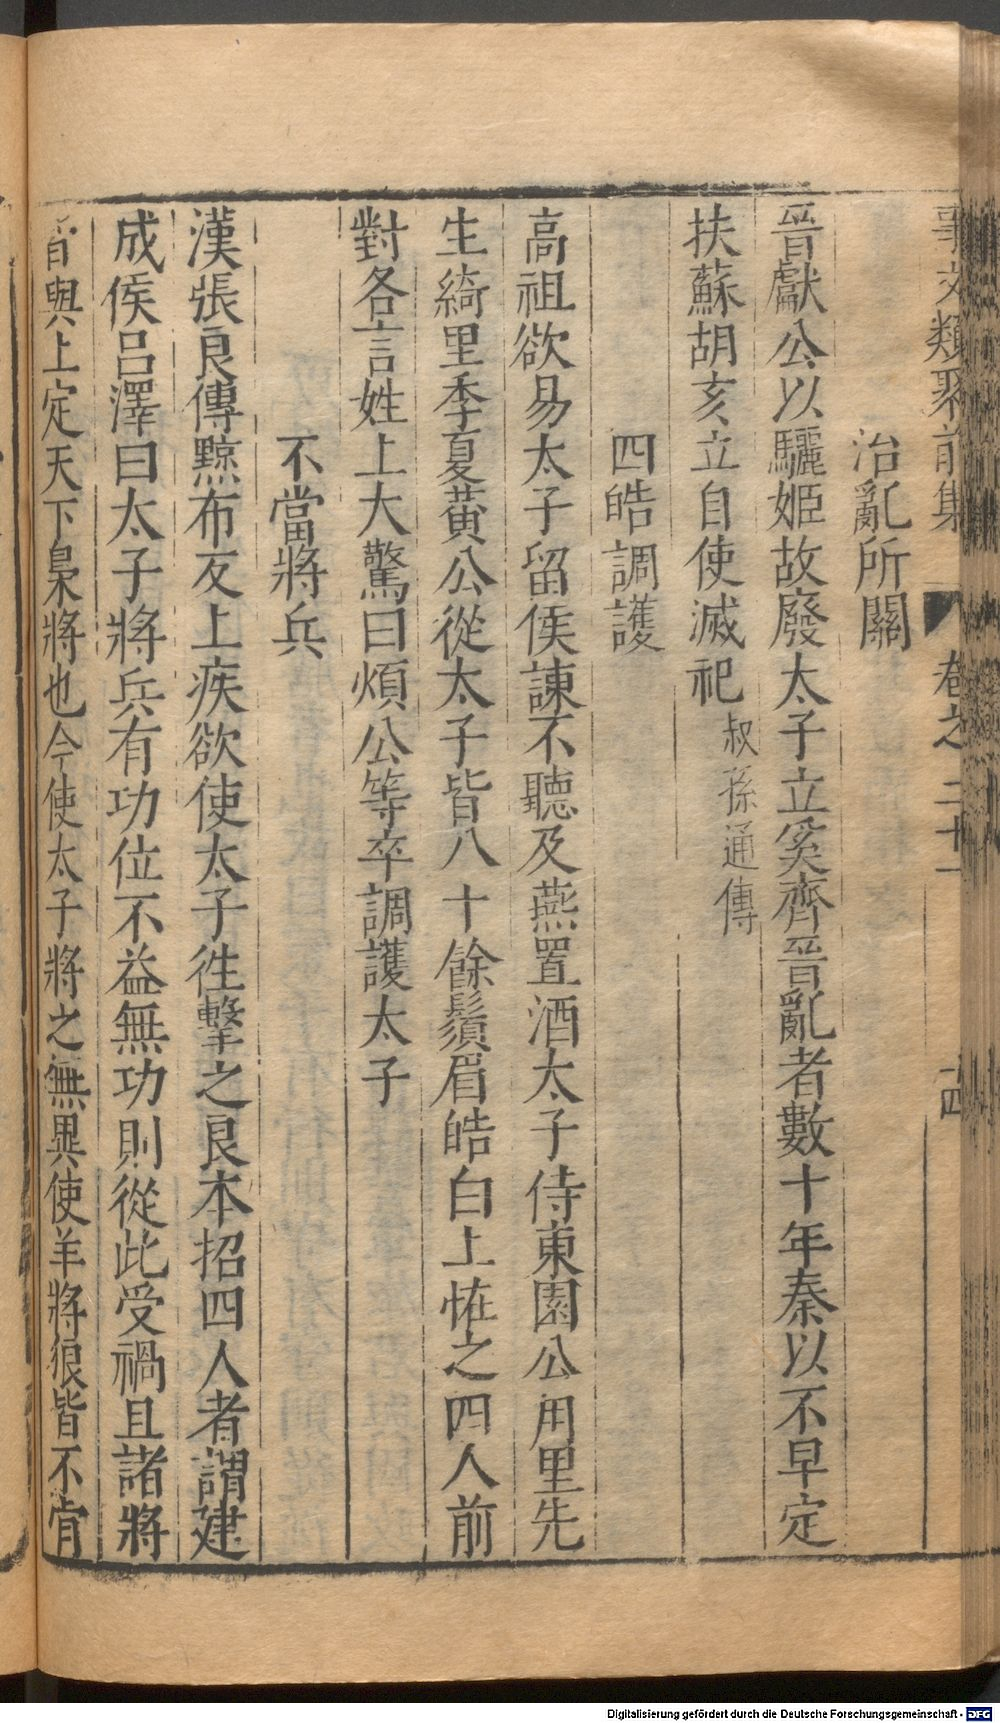 事文類聚前集 卷之二十一 四
治亂所關
晉獻公以驪姬故廢太子立奚齊晉亂者數十年秦以不早定
扶蘇胡亥立自使滅祀叔孫通傳
四皓調護
高祖欲易太子留侯諫不聽及燕置酒太子侍東園公甪里先
生綺里季夏黃公從太子皆八十餘鬚眉皓白上恠之四人前
對各言姓上大驚曰煩公等卒調護太子
不當將兵
漢張良傳黥布反上疾欲使太子徃擊之良本招四人者謂建
成侯呂澤曰太子將兵有功位不益無功則從此受禍且諸將
皆與上定天下梟將也今使太子將之無異使羊將狼皆不肯
Digitalisierung gefördert durch die Deutsche Forschungsgemeinschaft - DFG